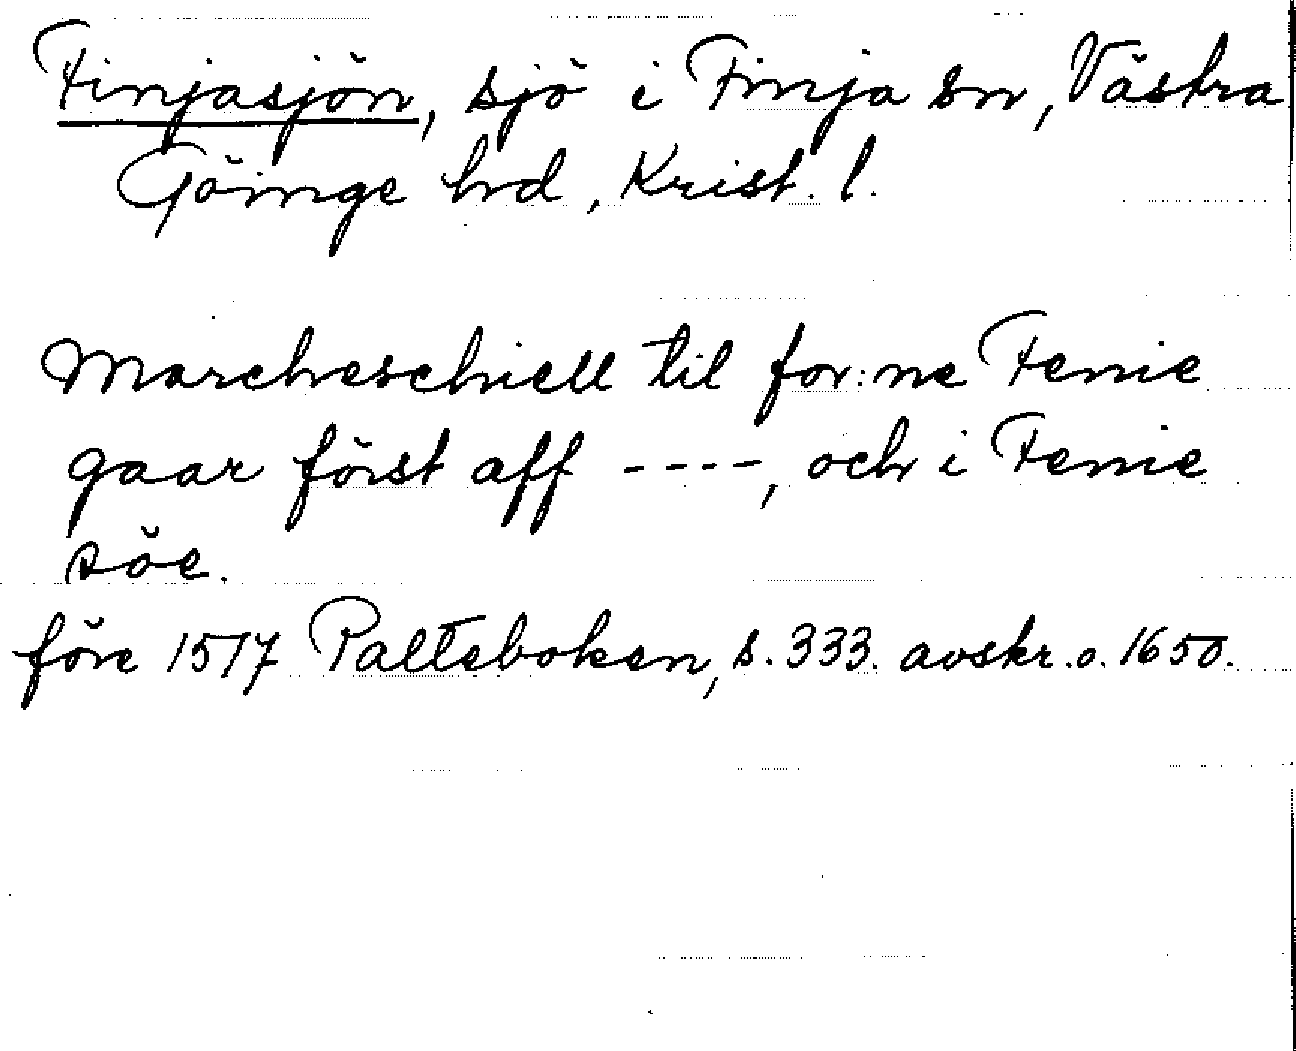 Finjasjön, sjö i Finja sn, Västra
Göinge hrd, Krist. l.
Marcheschiell til for:ne Fenie
gaar först aff ----, och i Fenie
söe.
före 1517 Palteboken, s. 333. avskr. o. 1650.